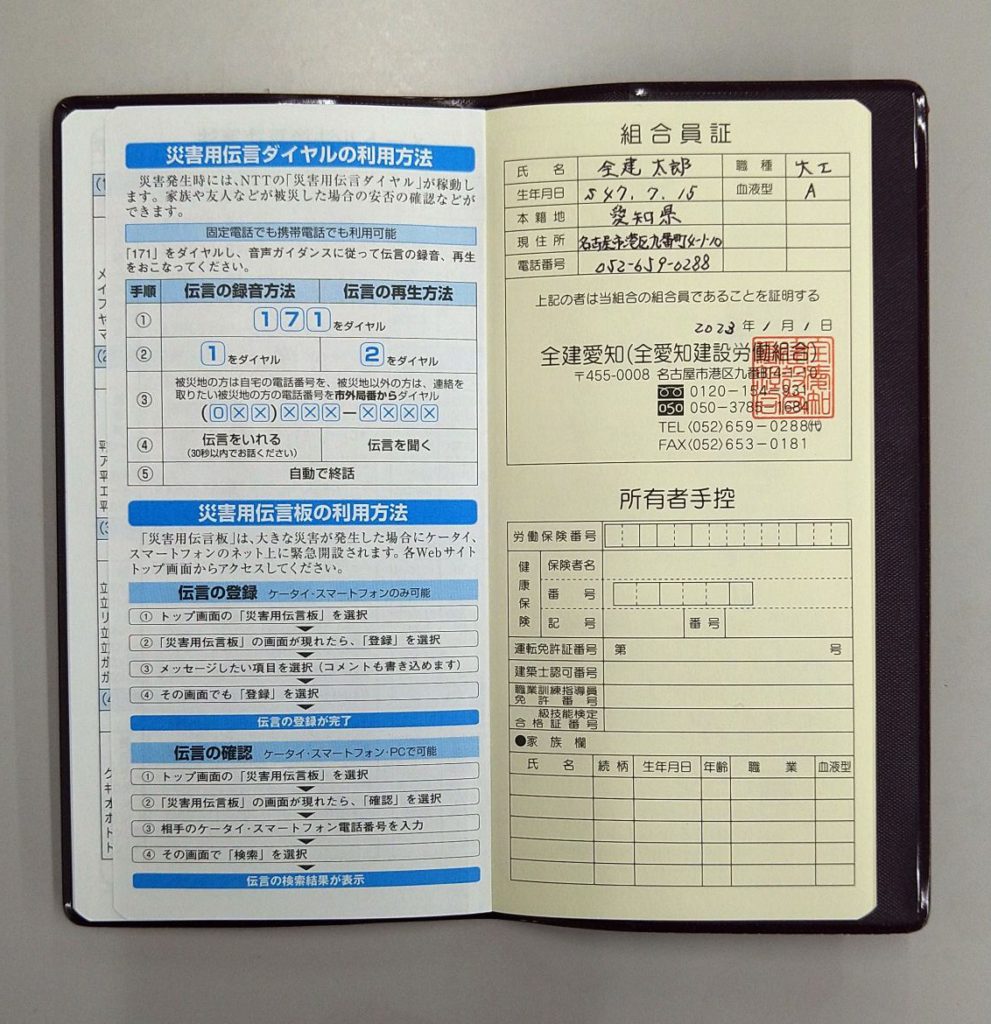 災害用伝言ダイヤルの利用方法
災害発生時には、NTTの「災害用伝言ダイヤル」が稼動し
ます。家族や友人などが被災した場合の安否の確認などが
できます。
固定電話でも携帯電話でも利用可能
「171」をダイヤルし、音声ガイダンスに従って伝言の録音、再生
をおこなってください。
手順 伝言の録音方法 伝言の再生方法
① 171をダイヤル
② 1をダイヤル 2をダイヤル
③ 被災地の方は自宅の電話番号を、被災地以外の方は、連絡を
取りたい被災地の方の電話番号を市外局番からダイヤル
(0××)×××-××××
④ 伝言をいれる 伝言を聞く
(30秒以内でお話ください)
⑤ 自動で終話
災害用伝言板の利用方法
「災害用伝言板」は、大きな災害が発生した場合にケータイ、
スマートフォンのネット上に緊急開設されます。各Webサイト
トップ画面からアクセスしてください。
伝言の登録 ケータイ・スマートフォンのみ可能
① トップ画面の「災害用伝言板」を選択
②「災害用伝言板」の画面が現れたら、「登録」を選択
③ メッセージしたい項目を選択(コメントも書き込めます)
④ その画面でも「登録」を選択
伝言の登録が完了
伝言の確認 ケータイ・スマートフォン・PCで可能
① トップ画面の「災害用伝言板」を選択
②「災害用伝言板」の画面が現れたら、「確認」を選択
③ 相手のケータイ・スマートフォン電話番号を入力
④ その画面で「検索」を選択
伝言の検索結果が表示
組合員証
氏名 全建 太郎 職種 大工
生年月日 S47.7.15 血液型 A
本籍地 愛知県
現住所 名古屋市港区九番町4-1-10
電話番号 052-659-0288
上記の者は当組合の組合員であることを証明する
2023年1月1日
全建愛知(全愛知建設労働組合)
〒455-0008 名古屋市港区九番町4-1-10
0120-154-931
050 050-3785-1684
TEL〈052〉659-0288代
FAX〈052〉653-0181
所有者手控
労働保険番号
健康保険 保険者名
番号
記号 番号
運転免許証番号 第 号
建築士認可番号
職業訓練指導員
免許番号
級技能検定
合格証番号
●家族欄
氏名 続柄 生年月日 年齢 職業 血液型